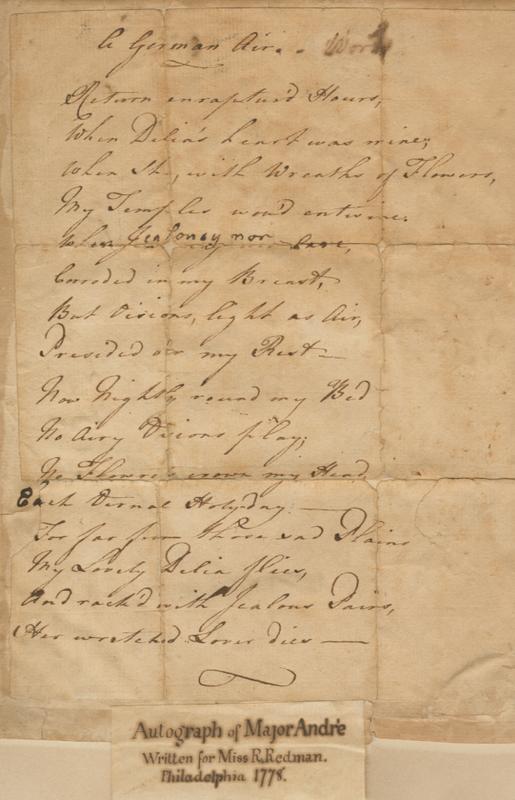 A German Air. Words
Return enraptur'd Hours,
When Delia's heart was mine;
When She, with Wreaths of Flowers,
My Temples wou'd entwine.
When Jealousy nor Care,
Corroded in my Breast,
But Visions, light as Air,
Presided o'er my Rest—
Now Nightly round my Bed
No Airy Visions play;
No Flowrets crown my Head
Each Vernal Holyday.—
For far from those sad Plains
My Lovely Delia flies,
And rack'd with Jealous Pains,
Her wretched Lover dies—
Autograph of Major André
Written for Miss R. Redman.
Philadelphia 1778.